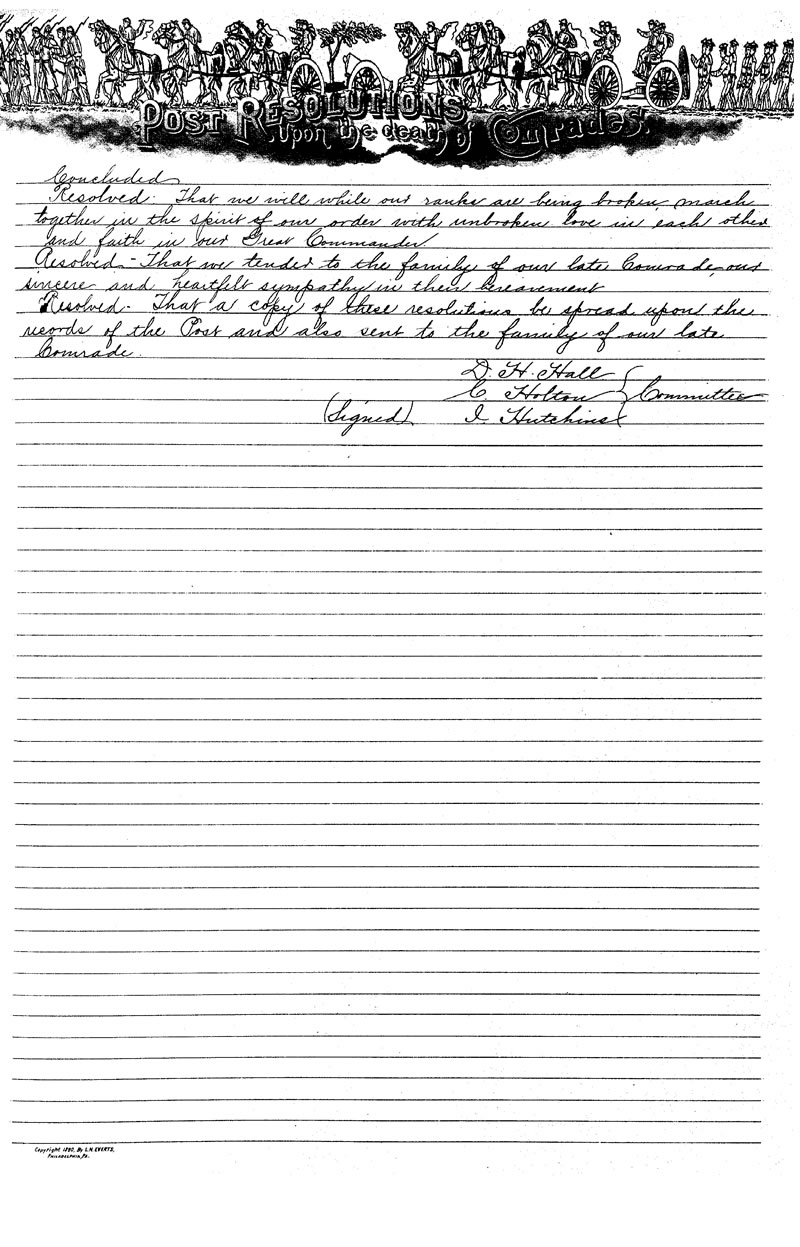 Post Resolutions
Upon the death of Comrades.
Concluded
Resolved. That we will while our ranks are being broken, march
together in the spirit of our order with unbroken love in each other
and faith in our Great Commander
Resolved - That we tender to the family of our late Comrade our
sincere and heartfelt sympathy in their bereavement
Resolved - That a copy of these resolutions be spread upon the
records of the Post and also sent to the family of our late
Comrade.
D. H. Hall
C. Holton } Committee
(Signed) I Hutchins
Copyright 1880, By L.H. EVERTS,
PHILADELPHIA, PA.